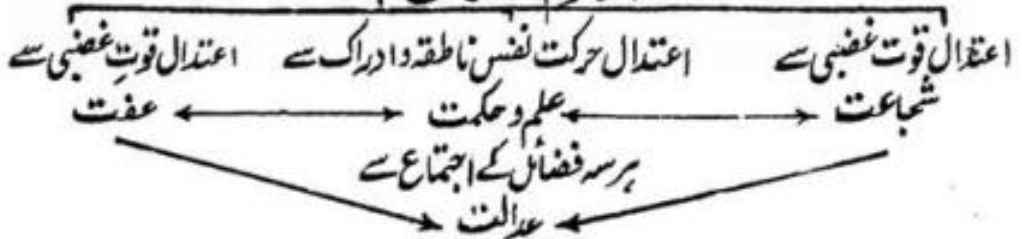 اعتدال قوت غضبی سے اعتدال حرکت نفس ناطقہ و ادراک سے اعتدال قوتِ غضبی سے
شجاعت علم و حکمت عفت
ہر سہ فضائل کے اجتماع سے
عدالت